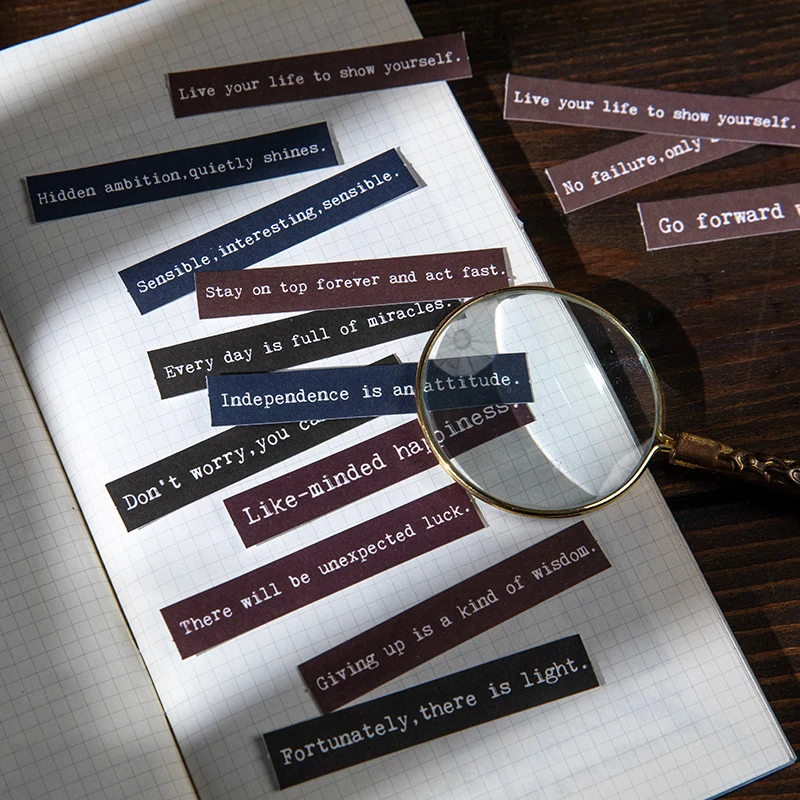 Live your life to show yourself.
Live your life to show yourself.
Hidden ambition,quietly shines.
No failure,only
Sensible,interesting,sensible.
Go forward
Stay on top forever and act fast.
Every day is full of miracles.
Independence is an attitude.
Don't worry,you
Like-minded happiness.
There will be unexpected luck.
Giving up is a kind of wisdom.
Fortunately,there is light.